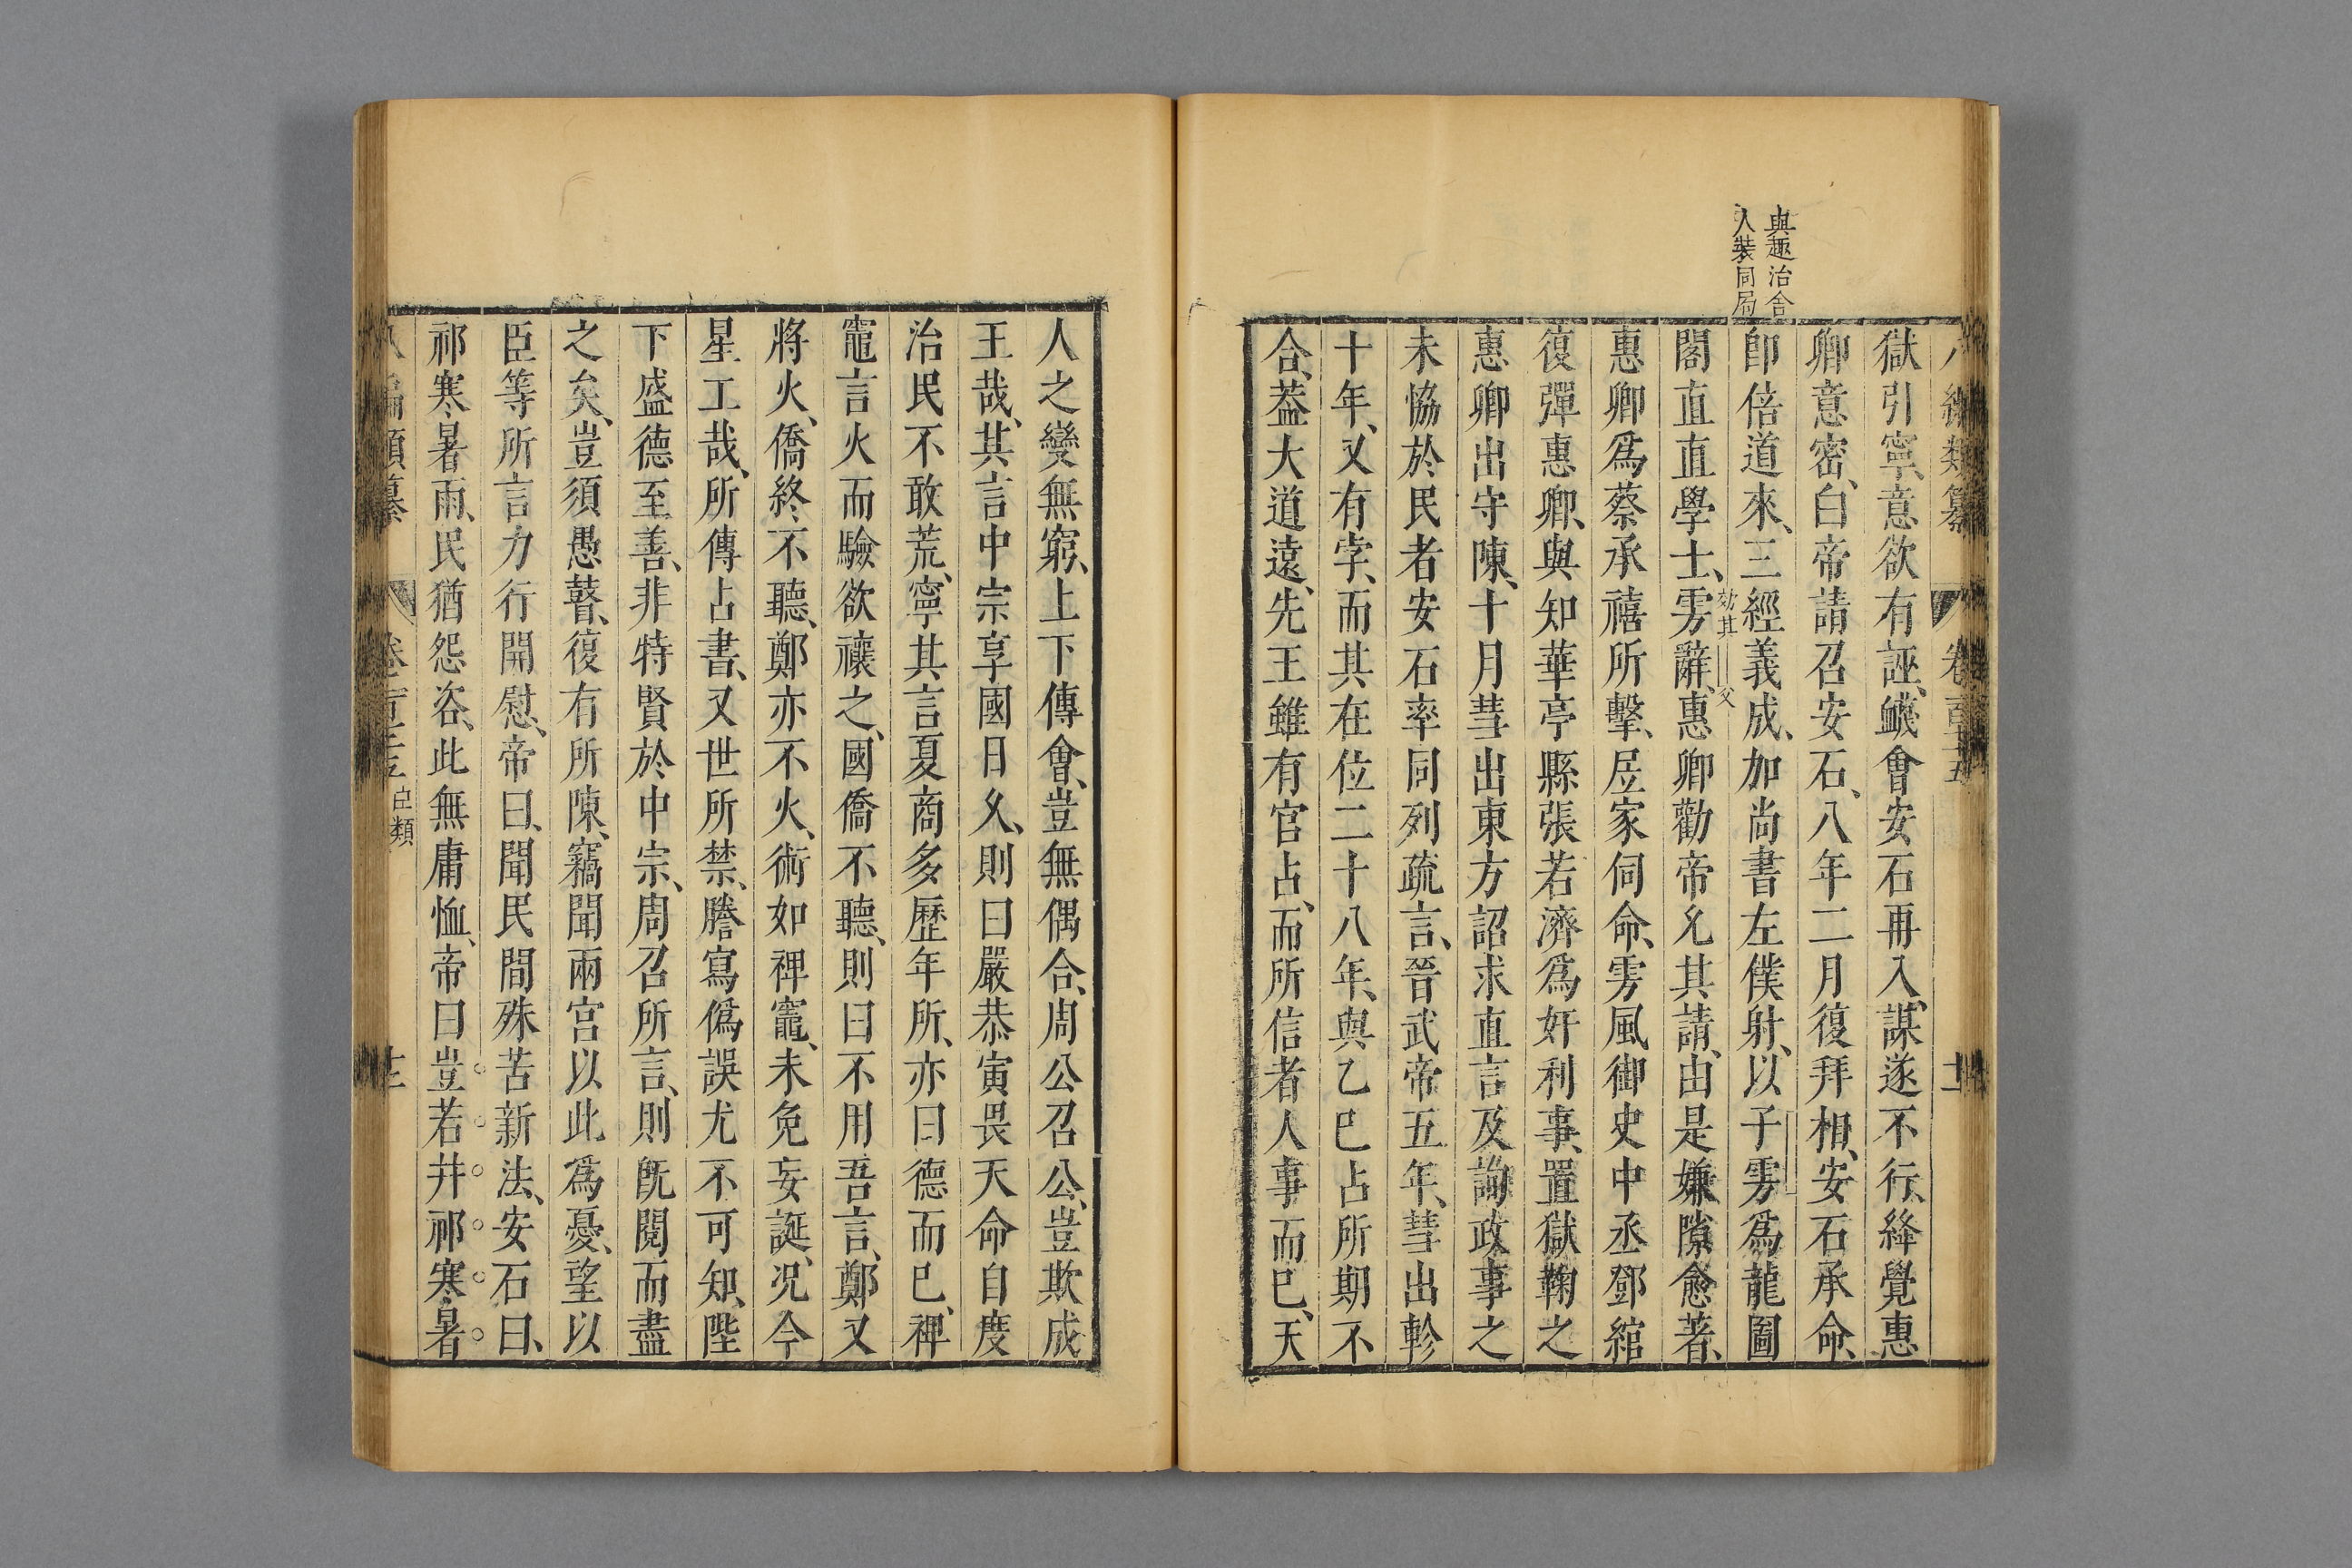 與趣治舍
人裝同局
獄引寧、意欲有誣、衊會安石再入、謀遂不行、絳覺惠
卿意密、白帝請召安石、八年二月復拜相、安石承命、
卽倍道來、三經義成、加尚書左僕射、以子雱爲龍圖
効其父
閣直直學士、雱辭、惠卿勸帝允其請、由是嫌隙愈著、
惠卿爲蔡承禧所擊、居家伺命、雱風御史中丞鄧綰
復彈惠卿、與知華亭縣張若濟爲奸利事、置獄鞠之
惠卿出守陳、十月彗出東方詔求直言及詢政事之
未恊於民者安石率同列疏言、晉武帝五年、彗出軫
十年、又有孛、而其在位二十八年、與乙巳占所期不
合、葢大道遠、先王雖有官占、而所信者人事而已、天
人之變無窮、上下傳會、豈無偶合、周公召公、豈欺成
王哉、其言中宗享國日久、則曰嚴恭寅畏天命自度
治民不敢荒、寧其言夏商多歷年所、亦曰德而已、禆
竈言火而驗欲禳之、國僑不聽、則曰不用吾言、鄭又
將火、僑終不聽、鄭亦不火、術如禆竈、未免妄誕、况今
星工哉、所傳占書、又世所禁、謄寫僞誤尤不可知、陛
下盛德至善、非特賢於中宗、周召所言、則旣閱而盡
之矣、豈須愚瞽、復有所陳、竊聞兩宮以此爲憂、望以
臣等所言力行開慰、帝曰、聞民間殊苦新法、安石曰、
祁寒暑雨、民猶怨咨、此無庸恤、帝曰豈若幷祁寒暑